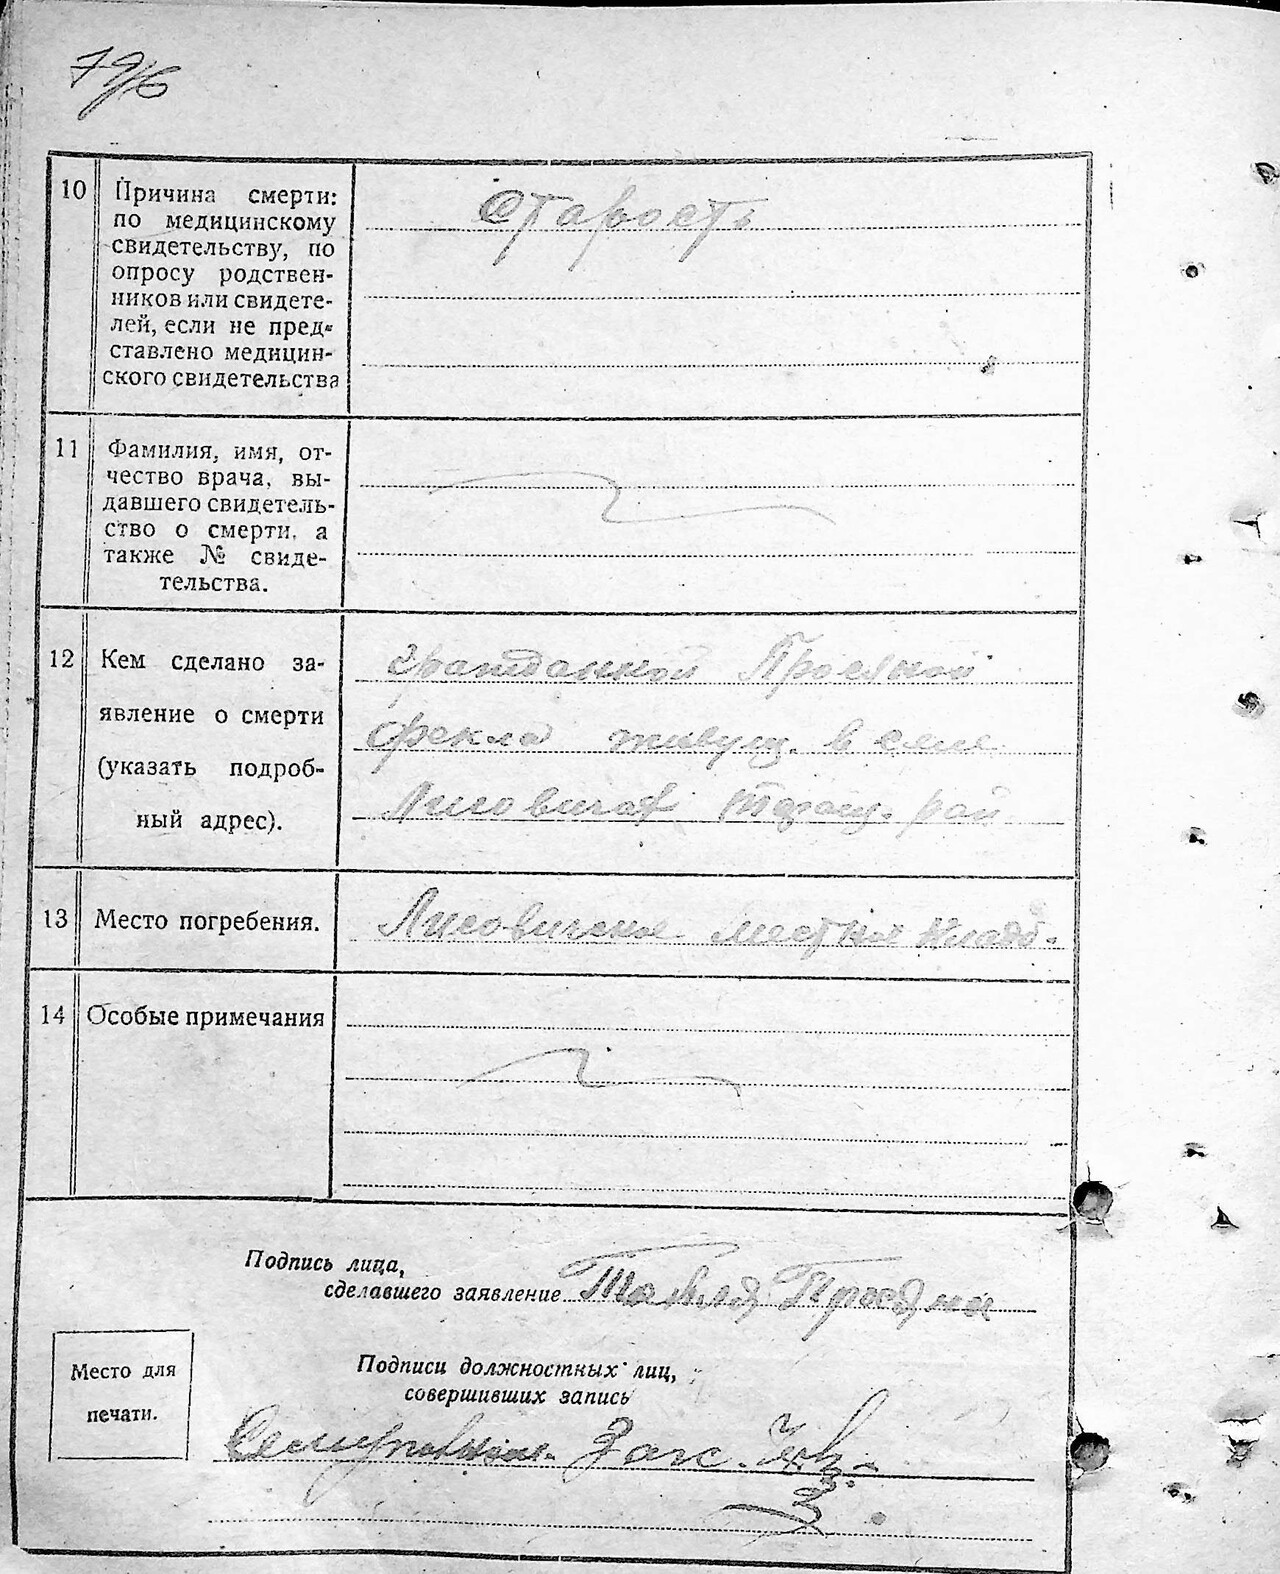 10 Причина смерти:
по медицинскому
свидетельству, по
опросу родствен-
ников или свидете-
лей, если не пред-
ставлено медицин-
ского свидетельства
Старость
11 Фамилия, имя, от-
чество врача, вы-
давшего свидетель-
ство о смерти, а
также № свиде-
тельства.
12 Кем сделано за-
явление о смерти
(указать подроб-
ный адрес).
гражданкой Просяной
Фекла живущ. в селе
Лисовичах Таращ. рай
13 Место погребения.
Лисовичское местное кладб.
14 Особые примечания
Подпись лица,
сделавшего заявление
Просяна
Место для
печати.
Подписи должностных лиц,
совершивших запись
Загс.